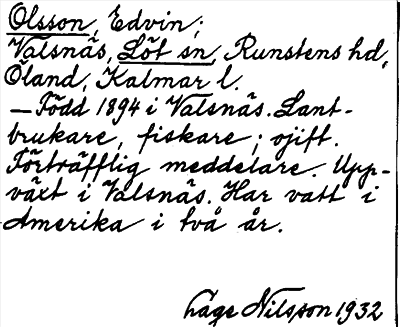 Olsson, Edvin;
Valsnäs, Löt sn, Runstens hd,
Öland, Kalmar l.
— Född 1894 i Valsnäs. Lant-
brukare, fiskare; ogift.
Förträfflig meddelare. Upp-
växt i Valsnäs. Har vatt i
Amerika i två år.
Låge Nilsson 1932